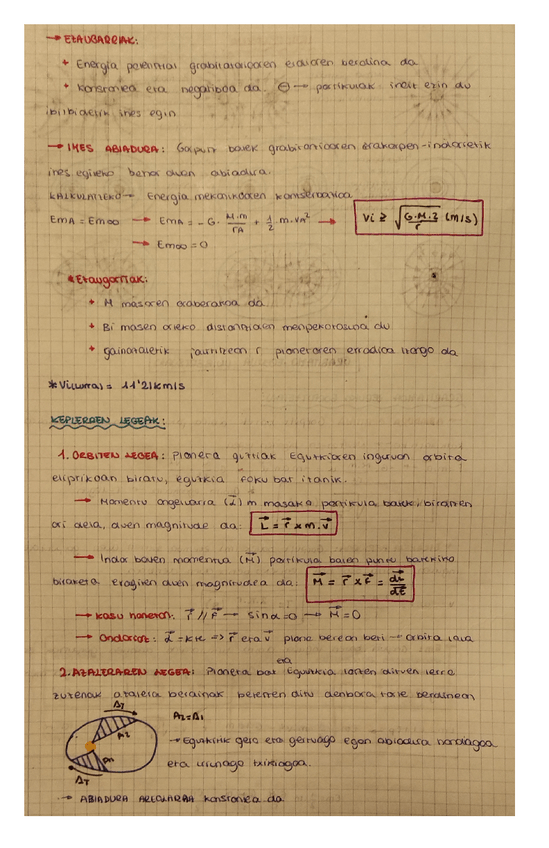 → EZAUGARRIAK:
* Energia potentzial grabitatorioaren erdiaren berdina da
* Konstantea eta negatiboa da. ⊖ → partikulak indit ezin du
ibilbidetik ihes egin
→ IHES ABIADURA: Gorputz batek grabitatorioaren erakarpen-indarretik
ihes egiteko behar duen abiadura.
KALKULATZEKO → Energia mekanikoaren kontserbazioa
EmA = Em∞ → EmA = -G · M·m/rA + 1/2 m·vA² → Vi ≥ √(G·M·2/r) (m/s)
→ Em∞ = 0
* Ezaugarriak:
* M masaren araberakoa da
* Bi masen arteko distantziaren menpekotasuna du
* gainazaletik jaurtitzean r planetaren erradioa izango da
* Vi(Lurra) = 11'21 km/s
KEPLERREN LEGEAK:
1. ORBITEN LEGEA: Planeta guztiak Eguzkiaren inguruan orbita
eliptikoan biratu, eguzkia foku bat izanik.
→ Momentu angeluarra (L⃗) m masako partikula batek, biratzen
ari dela, duen magnitude da: L⃗ = r⃗ × m·v⃗
→ Indar baten momentua (M⃗) partikula baten puntu batekiko
biraketa eragiten duen magnitudea da: M⃗ = r⃗ × F⃗ = dL⃗/dt
→ Kasu honetan: r⃗ // F⃗ → sin α = 0 → M⃗ = 0
→ Ondorioz: L⃗ = kte => r⃗ eta v⃗ plano berean beti → orbita laua
eta
2. AZALERAREN LEGEA: Planeta bat Eguzkia lotzen dituen lerro
zuzenak azalera berdinak betetzen ditu denbora tarte berdinean
ΔT
A2 = A1
A2
A1
→ Eguzkitik gero eta gertuago egon abiadura handiagoa
eta urrunago txikiagoa.
ΔT
→ ABIADURA AREOLARRA konstantea da